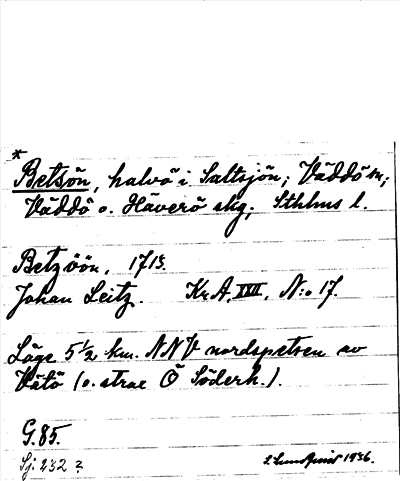 *
Betsön, halvö i Saltsjön; Väddö m;
Väddö o. Häverö skg; Sthlms l.
Betzöön, 1713.
Johan Leitz. Kr. A, XVII, N:o 17.
Läge 5½ km. NNV nordspetsen av
Vätö (o. strax Ö Söderh.).
G. 85.
Sj: 232 ?
1936.